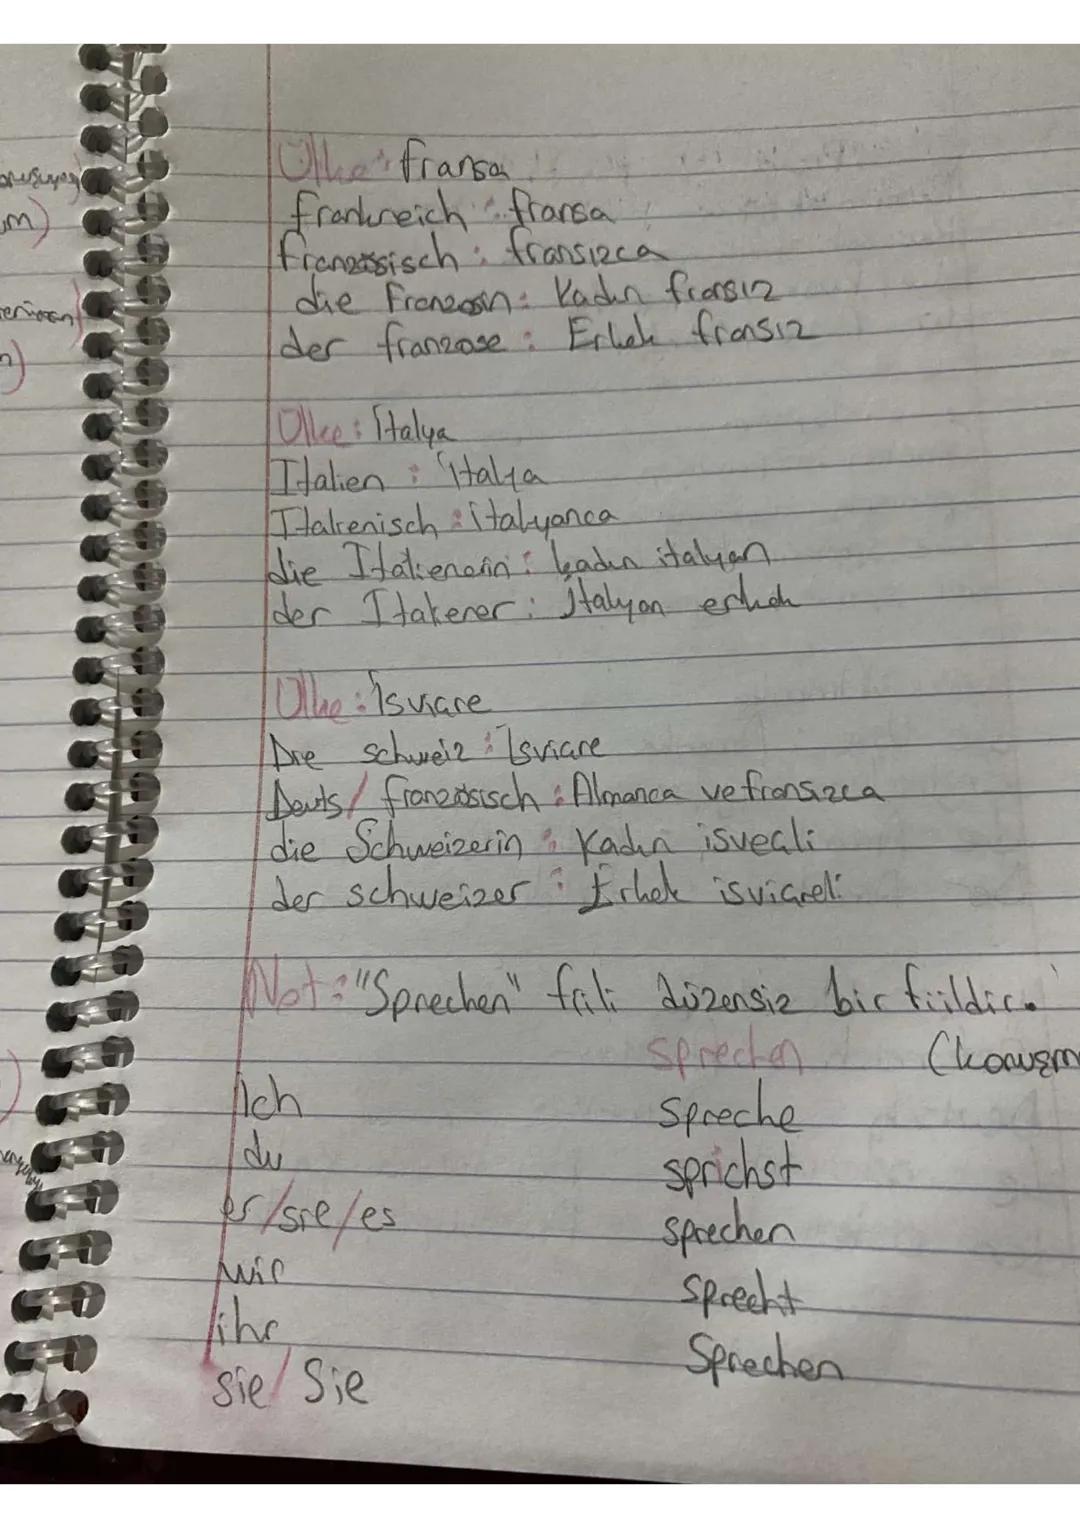 Ülke: fransa
frankreich: fransa
französisch: fransızca
die Franzosin: Kadın fransız
der franzose: Erkek fransız
Ülke: İtalya
Italien: italya
Italienisch: italyanca
die Italienerin: kadın italyan
der Italiener: İtalyan erkek
Ülke: İsviçre
Die schweiz: İsviçre
Deuts/ französisch: Almanca ve fransızca
die Schweizerin: Kadın isveçli
der schweizer: Erkek isviçreli
Not: "Sprechen" fiili düzensiz bir fiildir.
sprechen (konuşm
Ich spreche
du sprichst
er/sie/es sprechen
wir sprecht
ihr Sprechen
sie/Sie